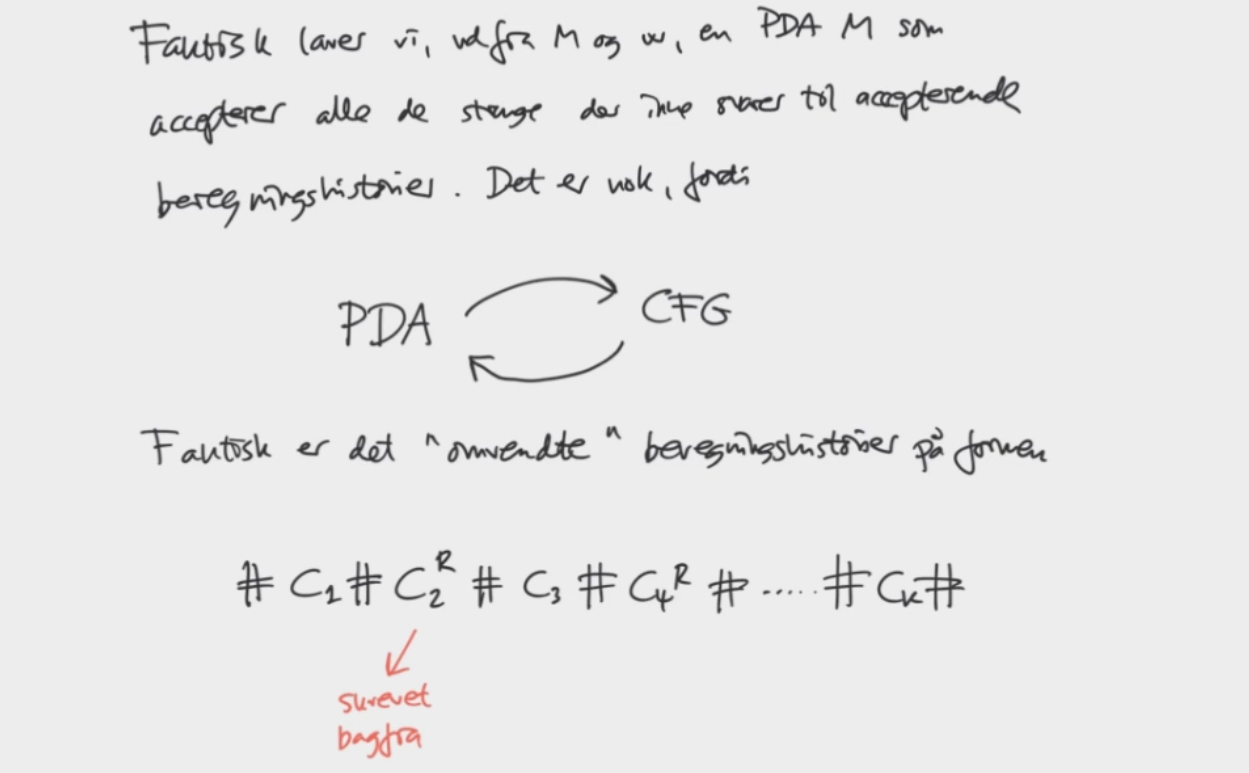 Faktisk laver vi, ud fra M og w, en PDA M som
accepterer alle de strenge der ikke svarer til accepterende
beregningshistorier. Det er nok, fordi
PDA CFG
Faktisk er det "omvendte" beregningshistorier på formen
# C₁ # C₂ᴿ # C₃ # C₄ᴿ # ..... # Cₖ #
skrevet
bagfra